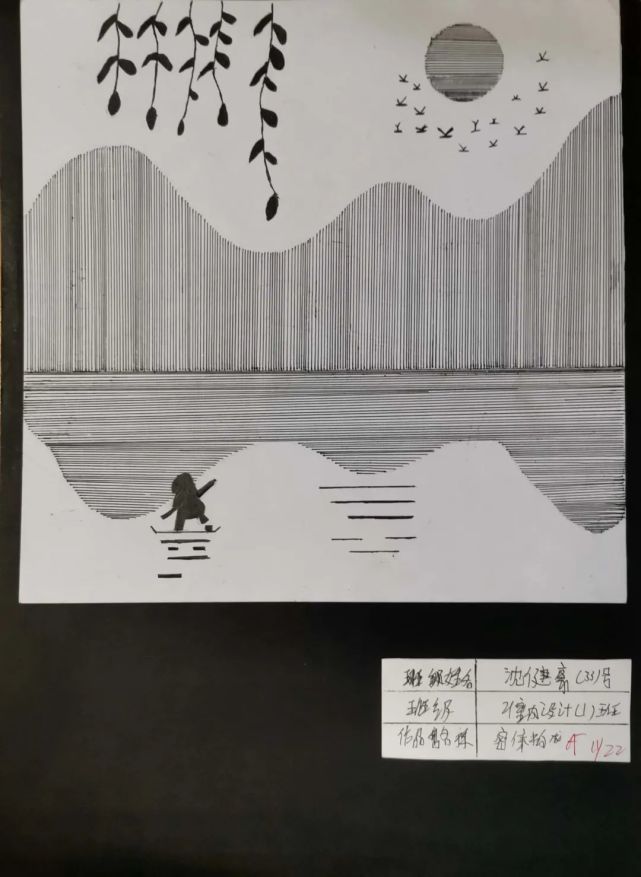 班级姓名 沈健豪 (35)号
班级 21室内设计(1)班
作品名称 密体构成 A 11/22